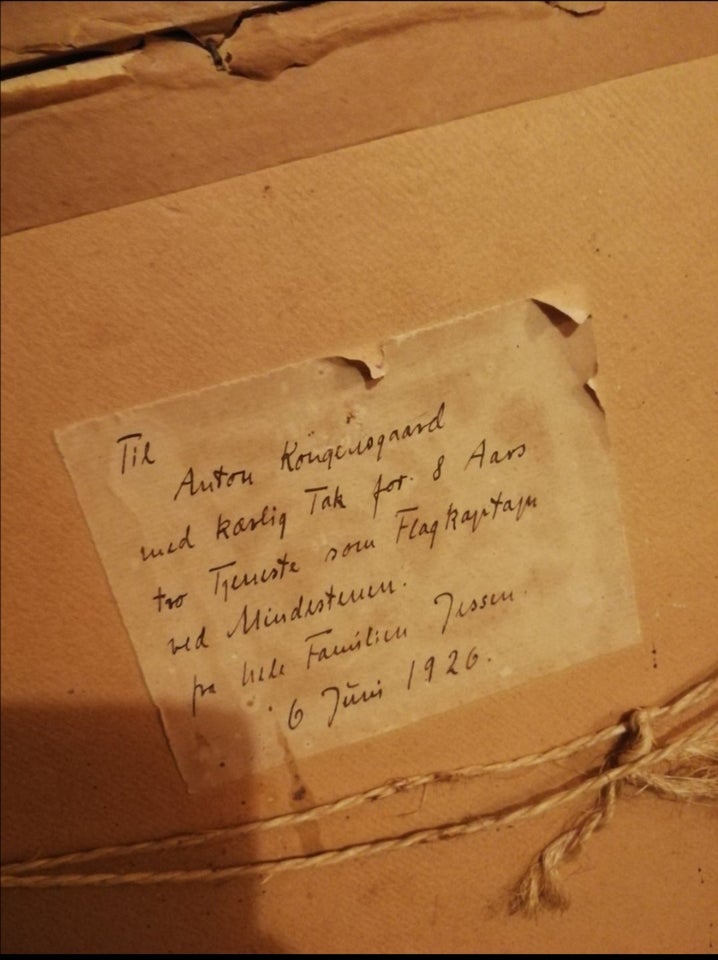 Til
Anton Kongensgaard
med kærlig Tak for 8 Aars
tro Tjeneste som Flagkaptajn
ved Mindestenen.
fra hele Familien Jessen.
6 Juni 1926.